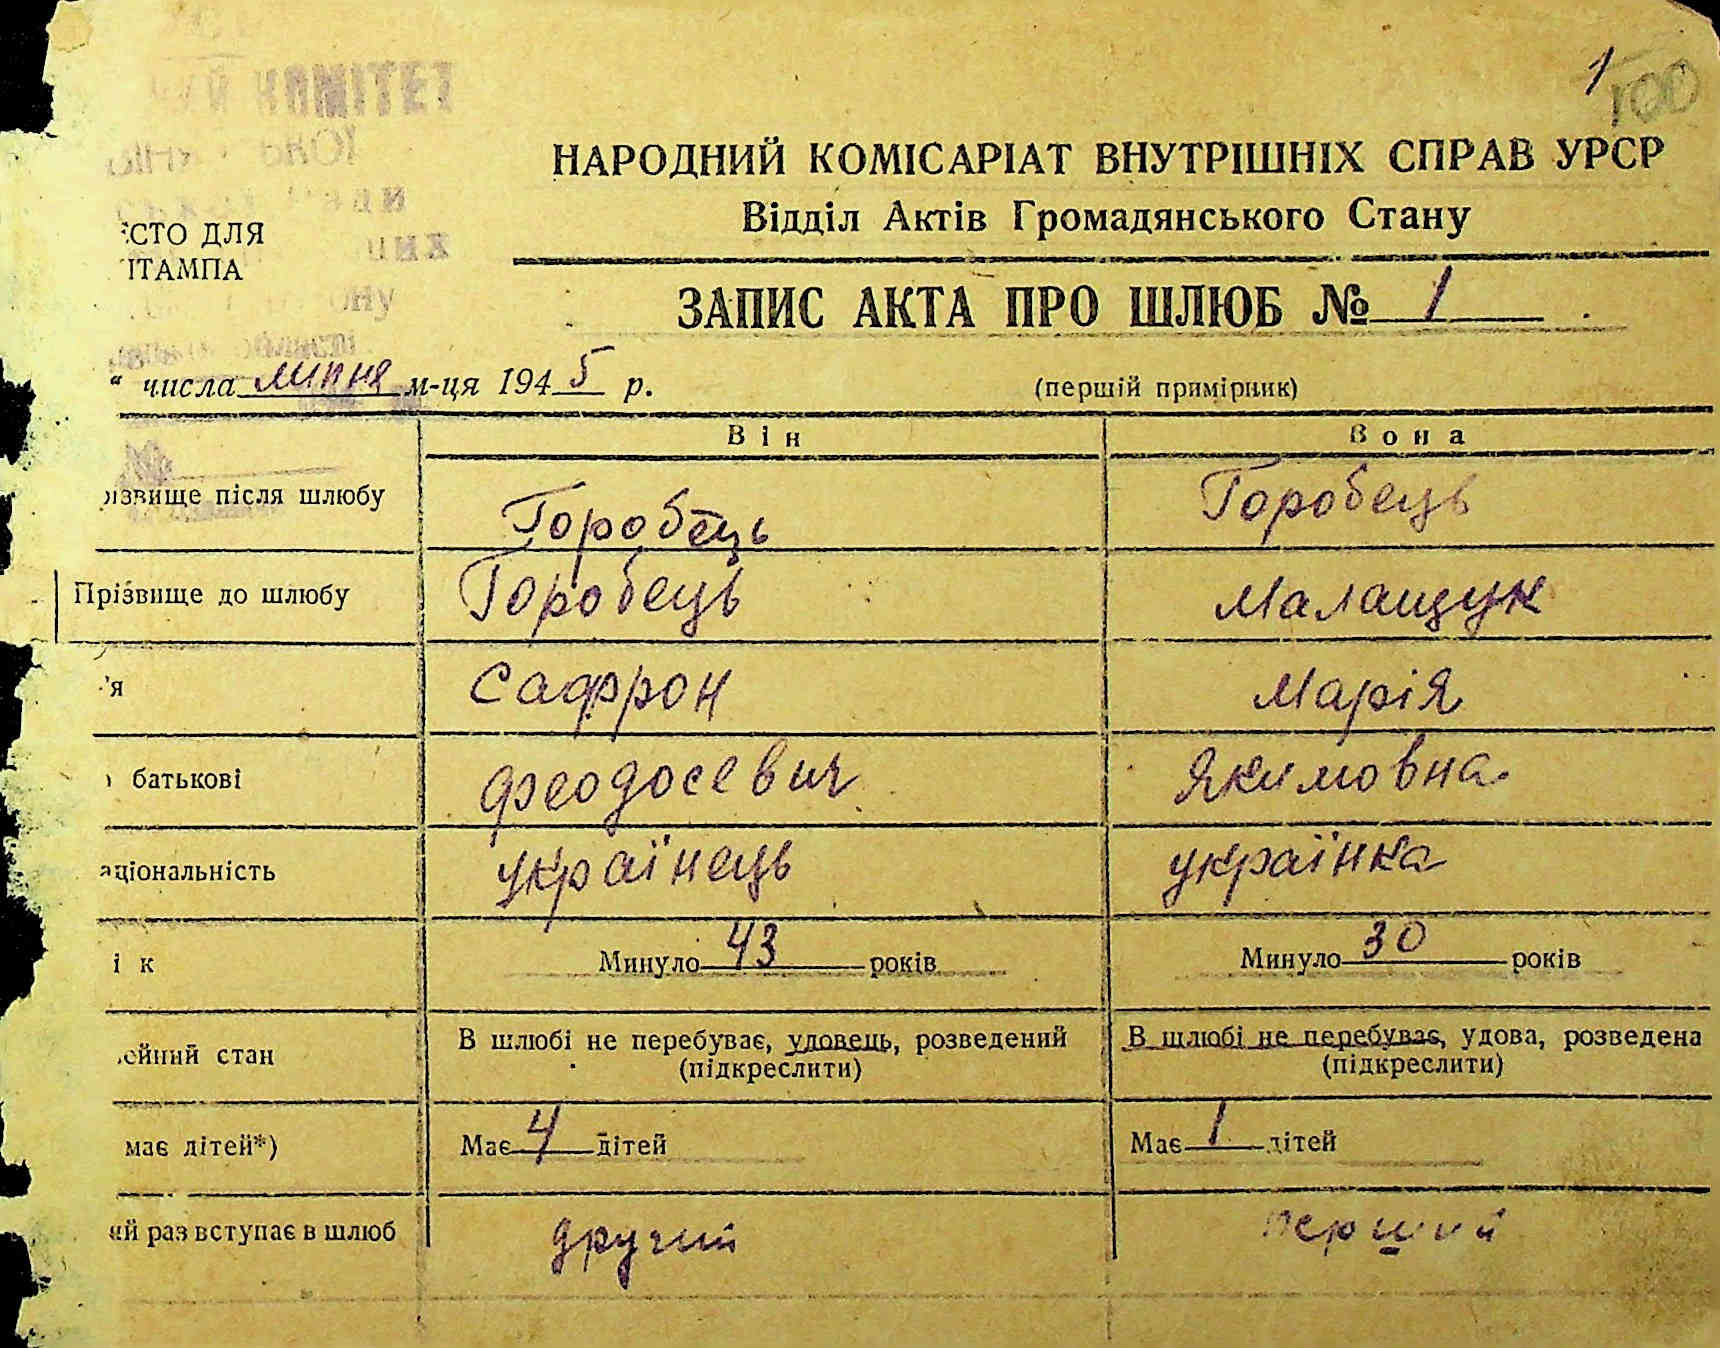 1
100
КОМІТЕТ
НАРОДНИЙ КОМІСАРІАТ ВНУТРІШНІХ СПРАВ УРСР
Відділ Актів Громадянського Стану
ІСТО ДЛЯ
ІТАМПА
ЗАПИС АКТА ПРО ШЛЮБ № 1
“ числа липня м-ця 1945 р. (першій примірник)
Він Вона
різвище після шлюбу Горобець Горобець
Прізвище до шлюбу Горобець Малащук
'я Сафрон Марія
батькові Феодосевич Якимовна
аціональність українець українка
ік Минуло 43 років Минуло 30 років
ейний стан В шлюбі не перебуває, удовець, розведений В шлюбі не перебуває, удова, розведена
(підкреслити) (підкреслити)
має дітей*) Має 4 дітей Має 1 дітей
ий раз вступає в шлюб другий перший